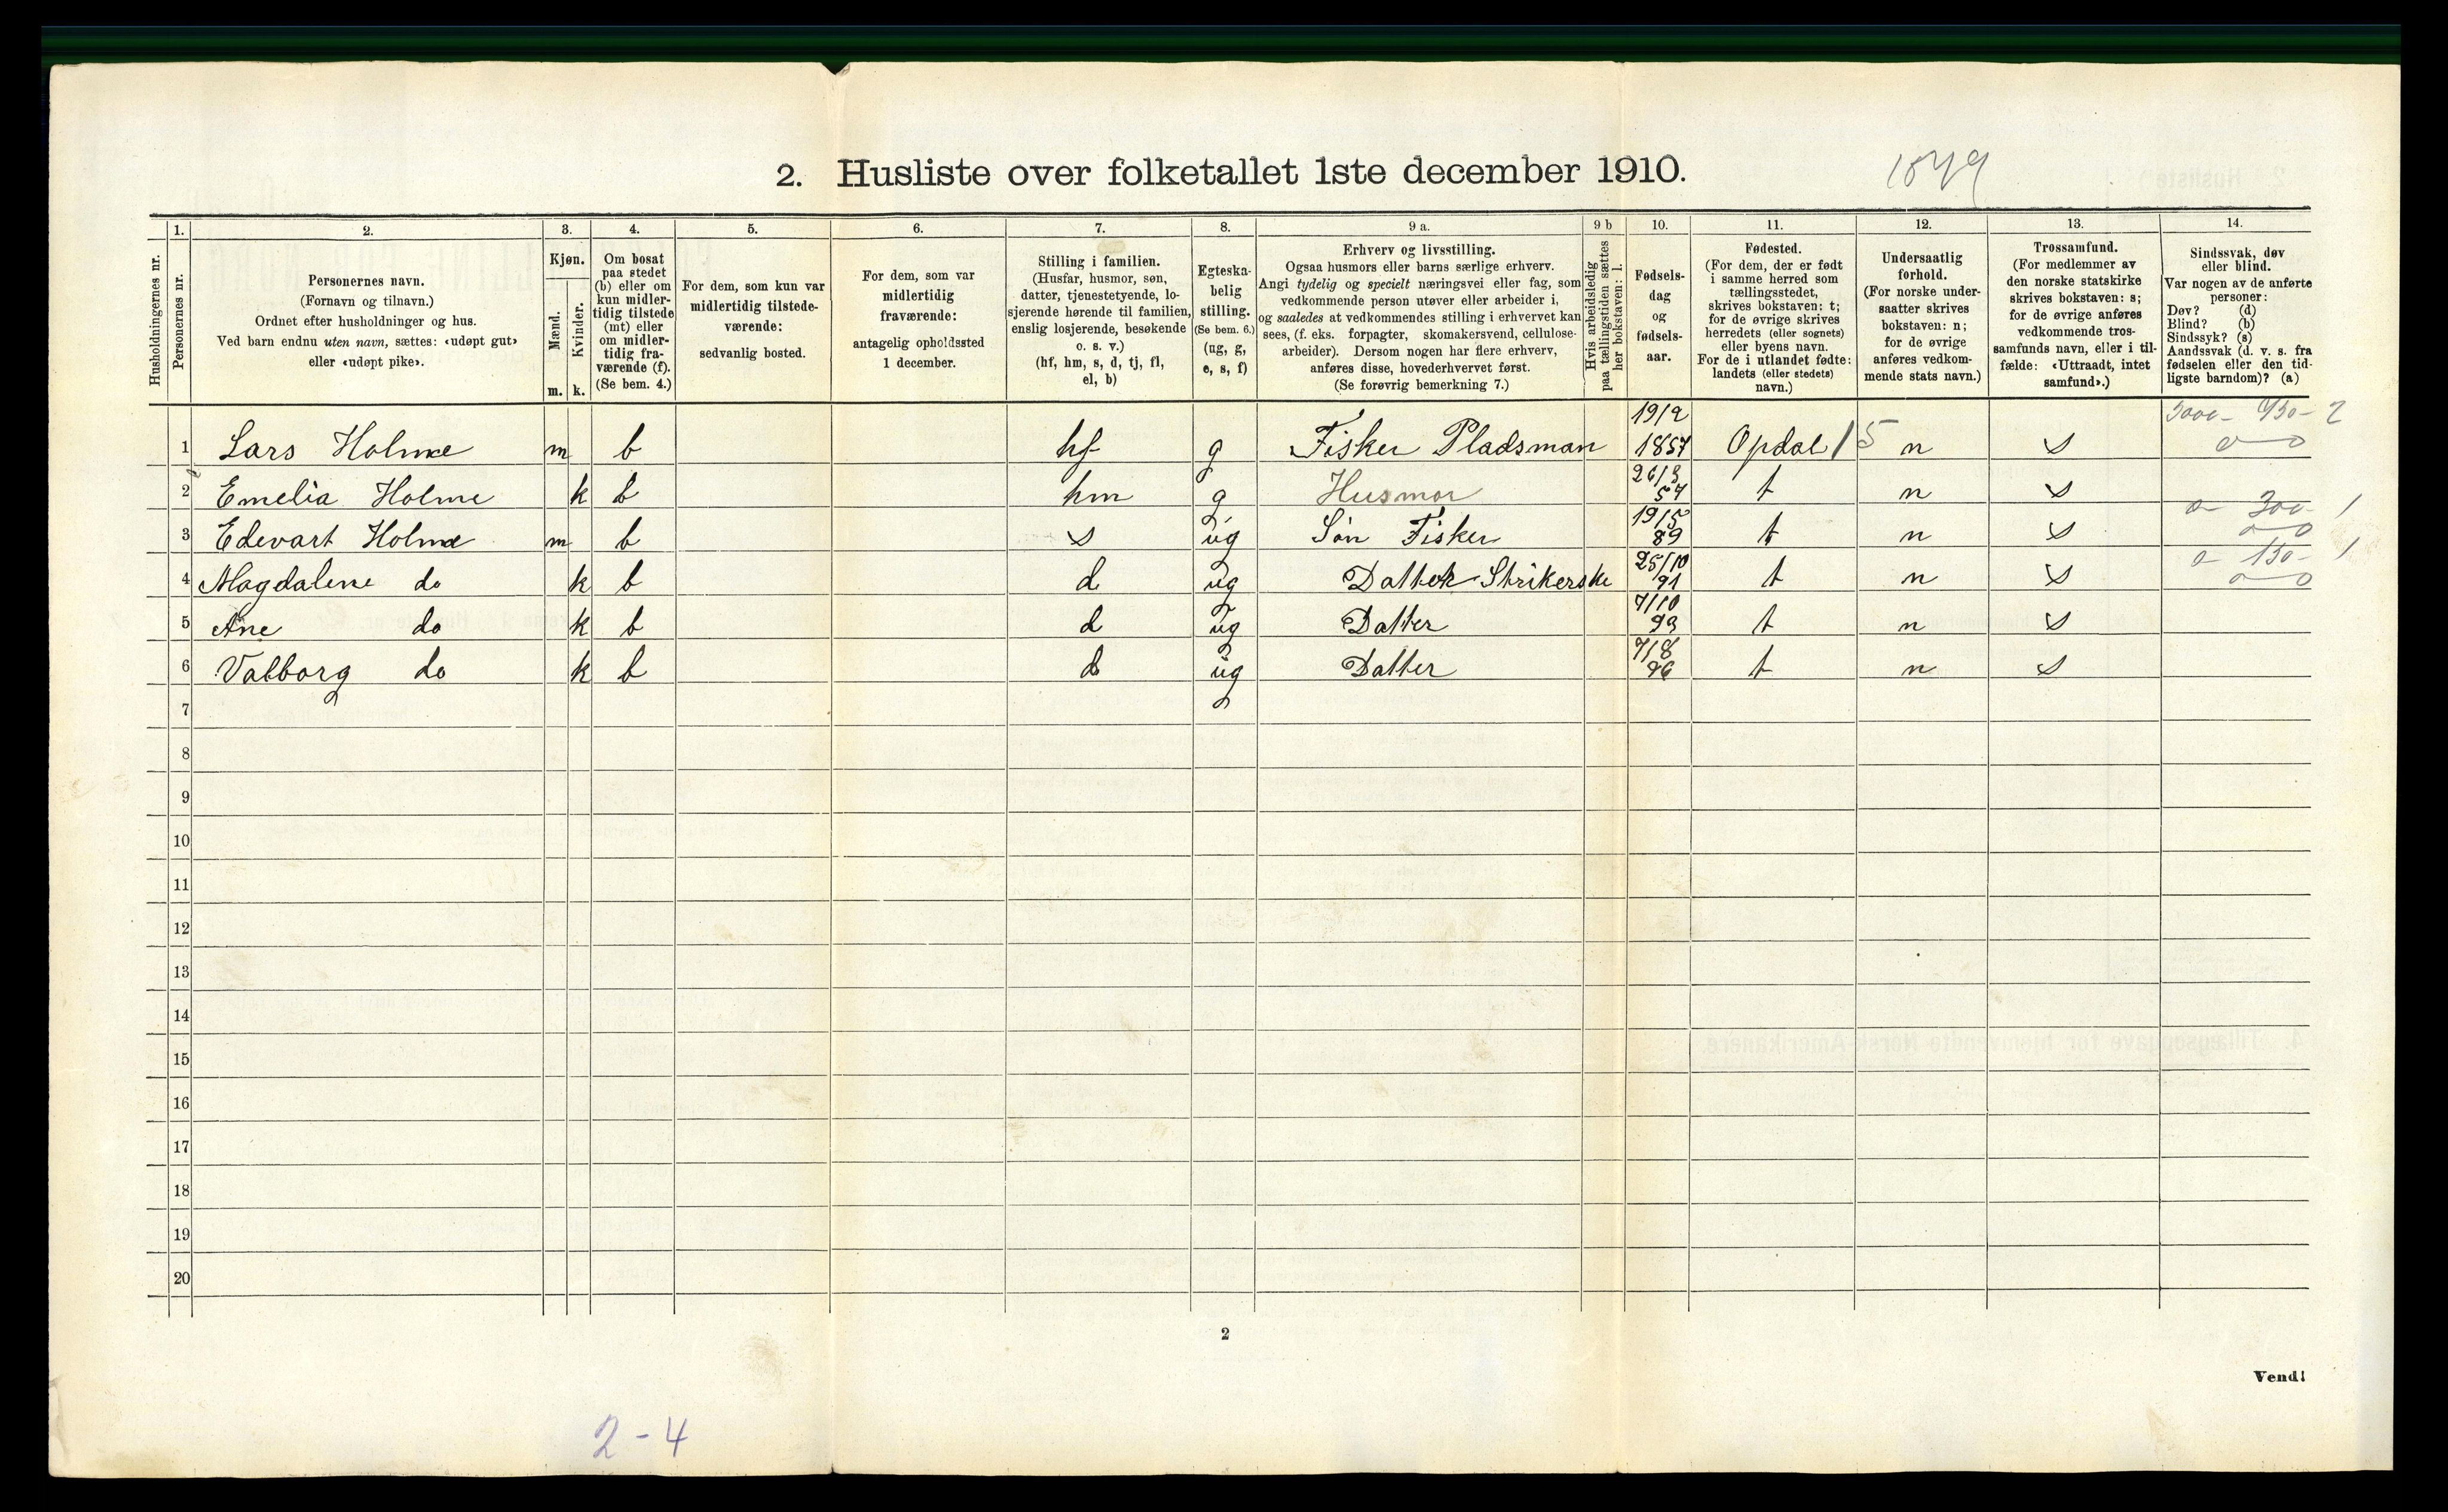 2. Husliste over folketallet 1ste december 1910.
1. 2. 3. 4. 5. 6. 7. 8. 9 a. 9 b 10. 11. 12. 13. 14.
Husholdningernes nr.
Personernes nr.
Personernes navn.
(Fornavn og tilnavn.)
Ordnet efter husholdninger og hus.
Ved barn endnu uten navn, sættes: «udøpt gut»
eller «udøpt pike».
Kjøn.
Mænd.
Kvinder.
m. k.
Om bosat
paa stedet
(b) eller om
kun midler-
tidig tilstede
(mt) eller
om midler-
tidig fra-
værende (f).
(Se bem. 4.)
For dem, som kun var
midlertidig tilstede-
værende:
sedvanlig bosted.
For dem, som var
midlertidig
fraværende:
antagelig opholdssted
1 december.
Stilling i familien.
(Husfar, husmor, søn,
datter, tjenestetyende, lo-
sjerende hørende til familien,
enslig losjerende, besøkende
o. s. v.)
(hf, hm, s, d, tj, fl,
el, b)
Egteska-
belig
stilling.
(Se bem. 6.)
(ug, g,
e, s, f)
Erhverv og livsstilling.
Ogsaa husmors eller barns særlige erhverv.
Angi tydelig og specielt næringsvei eller fag, som
vedkommende person utøver eller arbeider i,
og saaledes at vedkommendes stilling i erhvervet kan
sees, (f. eks. forpagter, skomakersvend, cellulose-
arbeider). Dersom nogen har flere erhverv,
anføres disse, hovederhvervet først.
(Se forøvrig bemerkning 7.)
Hvis arbeidsledig
paa tællingstiden sættes
her bokstaven: l.
Fødsels-
dag
og
fødsels-
aar.
Fødested.
(For dem, der er født
i samme herred som
tællingsstedet,
skrives bokstaven: t;
for de øvrige skrives
herredets (eller sognets)
eller byens navn.
For de i utlandet fødte:
landets (eller stedets)
navn.)
Undersaatlig
forhold.
(For norske under-
saatter skrives
bokstaven: n;
for de øvrige
anføres vedkom-
mende stats navn.)
Trossamfund.
(For medlemmer av
den norske statskirke
skrives bokstaven: s;
for de øvrige anføres
vedkommende tros-
samfunds navn, eller i til-
fælde: «Uttraadt, intet
samfund».)
Sindssvak, døv
eller blind.
Var nogen av de anførte
personer:
Døv? (d)
Blind? (b)
Sindssyk? (s)
Aandssvak (d. v. s. fra
fødselen eller den tid-
ligste barndom)? (a)
1 Lars Holme m b hf g Fisker Pladsman 19/2 1857 Opdal 15 n s
2 Emelia Holme k b hm g Husmor 26/3 57 t n s
3 Edevart Holme m b s ug Søn Fisker 19/5 89 t n s
4 Magdalene do k b d ug Datter Strikerske 25/10 91 t n s
5 Ane do k b d ug Datter 7/10 93 t n s
6 Valborg do k b d ug Datter 7/8 96 t n s
7
8
9
10
11
12
13
14
15
16
17
18
19
20
2
Vend!
2-4